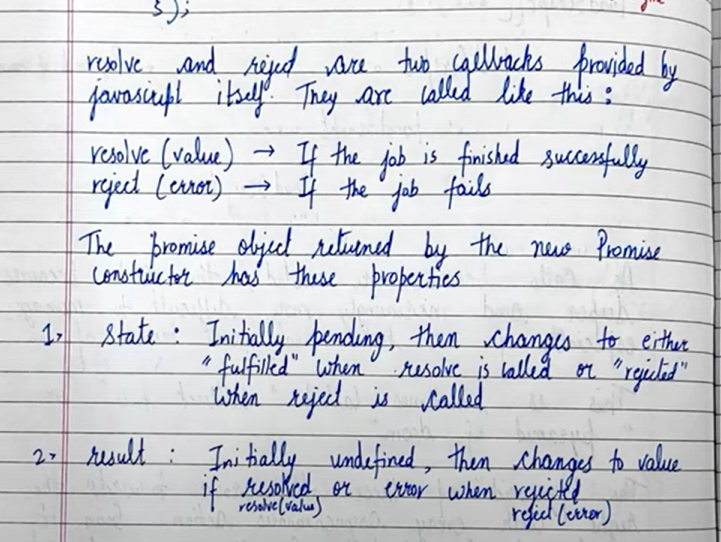 });
resolve and reject are two callbacks provided by
javascript itself. They are called like this :
resolve (value) → If the job is finished successfully
reject (error) → If the job fails
The promise object returned by the new Promise
constructor has these properties
1, State : Initially pending, then changes to either
"fulfilled" when resolve is called or "rejected"
when reject is called
2, result : Initially undefined, then changes to value
if resolved, or error when rejected
resolve(value) reject (error)